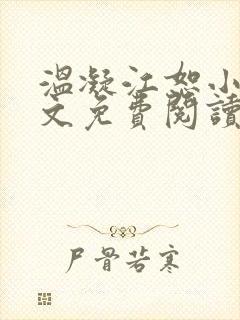 溫凝江恕小
文免費閱讀
尸骨若寒